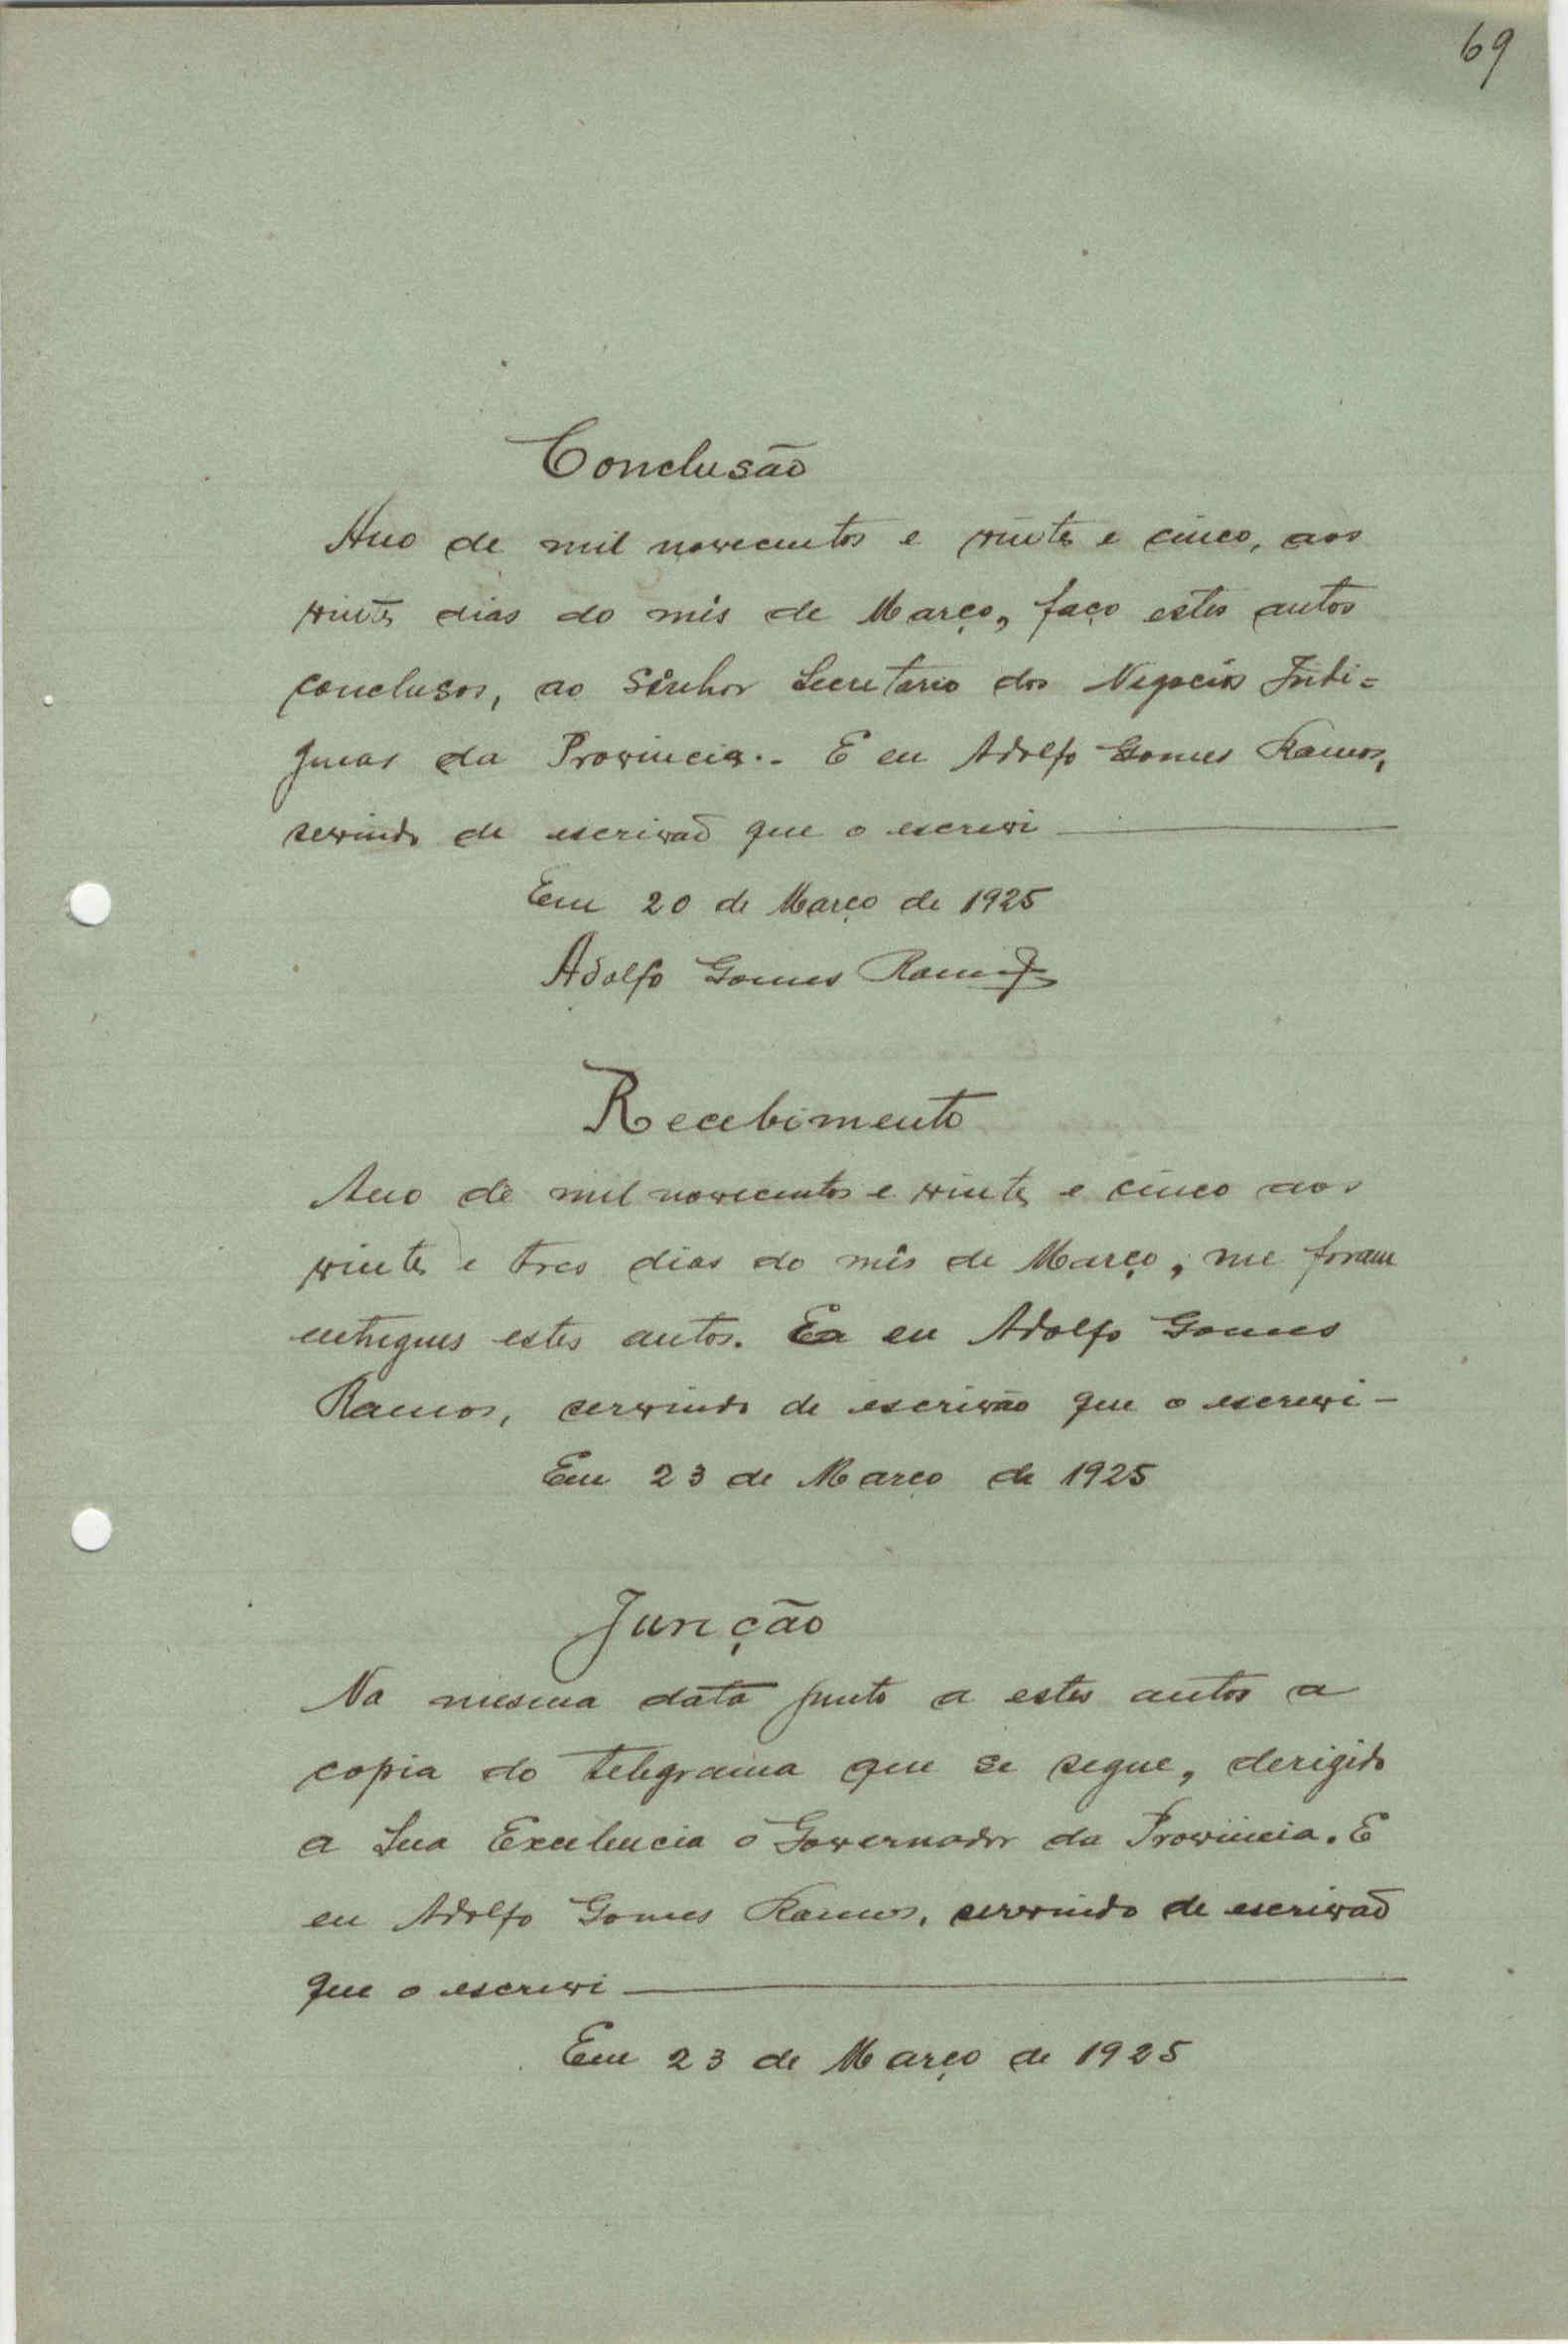 69
Conclusão
Ano de mil novecentos e vinte e cinco, aos
vinte dias do mês de Março, faço estes autos
conclusos, ao Senhor Secretario dos Negocios Indi=
genas da Provincia.- E eu Adolfo Gomes Ramos,
servindo de escrivaõ que o escrevi
Em 20 de Março de 1925
Adolfo Gomes Ramos
Recebimento
Ano de mil novecentos e vinte e cinco aos
vinte e tres dias do mês de Março, me foram
entregues estes autos. E eu Adolfo Gomes
Ramos, servindo de escrivão que o escrevi-
Em 23 de Março de 1925
Junção
Na mesma data junto a estes autos a
copia do telegrama que se segue, derigido
a Sua Excelencia o Governador da Provincia. E
eu Adolfo Gomes Ramos, servindo de escrivaõ
que o escrevi
Em 23 de Março de 1925